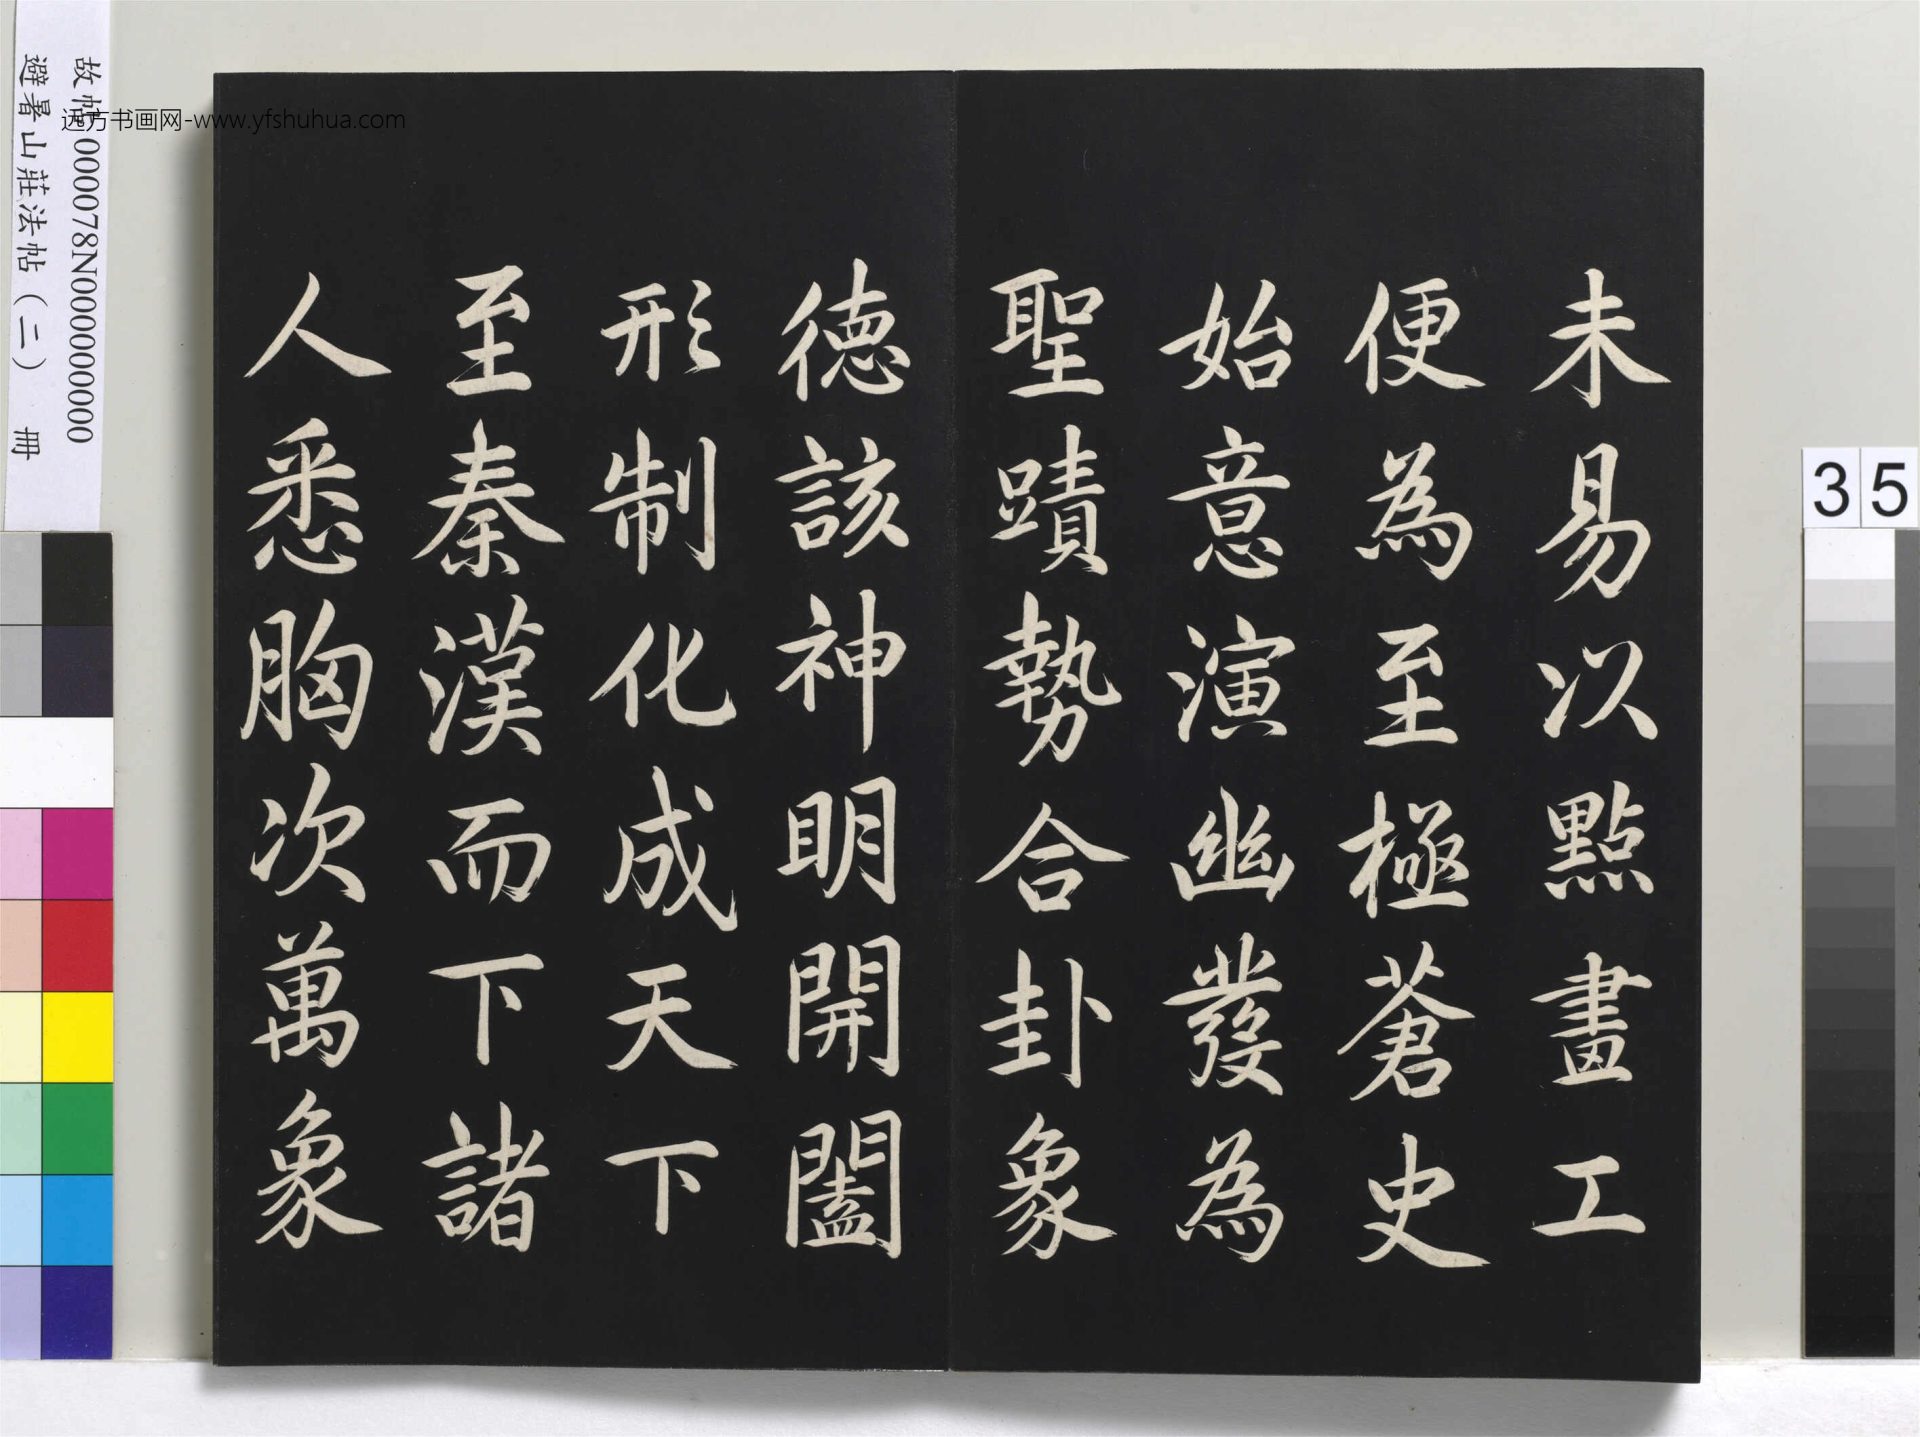 未易以點畫工
便為至極蒼史
始意演幽發為
聖蹟勢合卦象
德該神明開闔
形制化成天下
至秦漢而下諸
人悉胸次萬象
故帖000078N000000000
避暑山莊法帖(二) 冊
远方书画网-www.yfshuhua.com
35